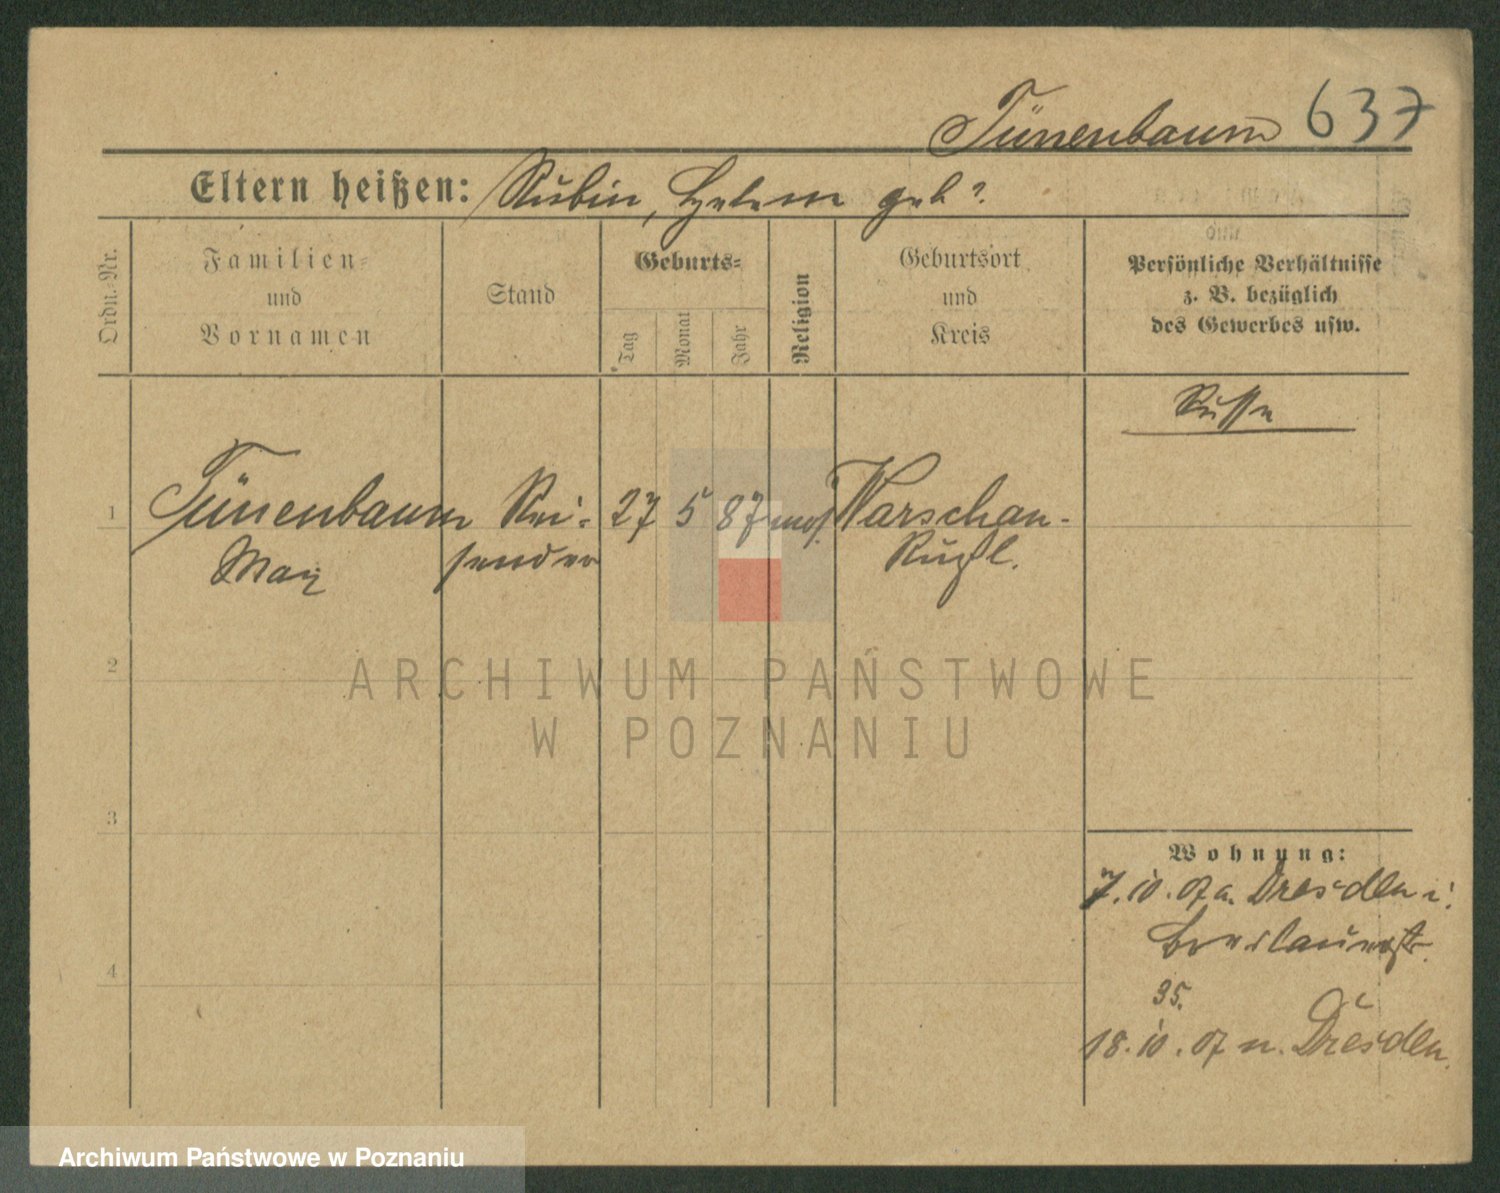 Tünenbaum 637
Eltern heißen: Rubin, Helene geb?
Ordn.-Nr.
Familien-
und
Vornamen
Stand
Geburts-
Tag
Monat
Jahr
Religion
Geburtsort
und
Kreis
Persönliche Verhältnisse
z. B. bezüglich
des Gewerbes usw.
Russe
1 Tünenbaum Rei- 27 5 87 mos. Warschau-
Max sender Rußl.
2
3
4
Wohnung:
7.10.07 a. Dresden i.
Breslauerst.
35.
18.10.07 n. Dresden.
ARCHIWUM PAŃSTWOWE
W POZNANIU
Archiwum Państwowe w Poznaniu